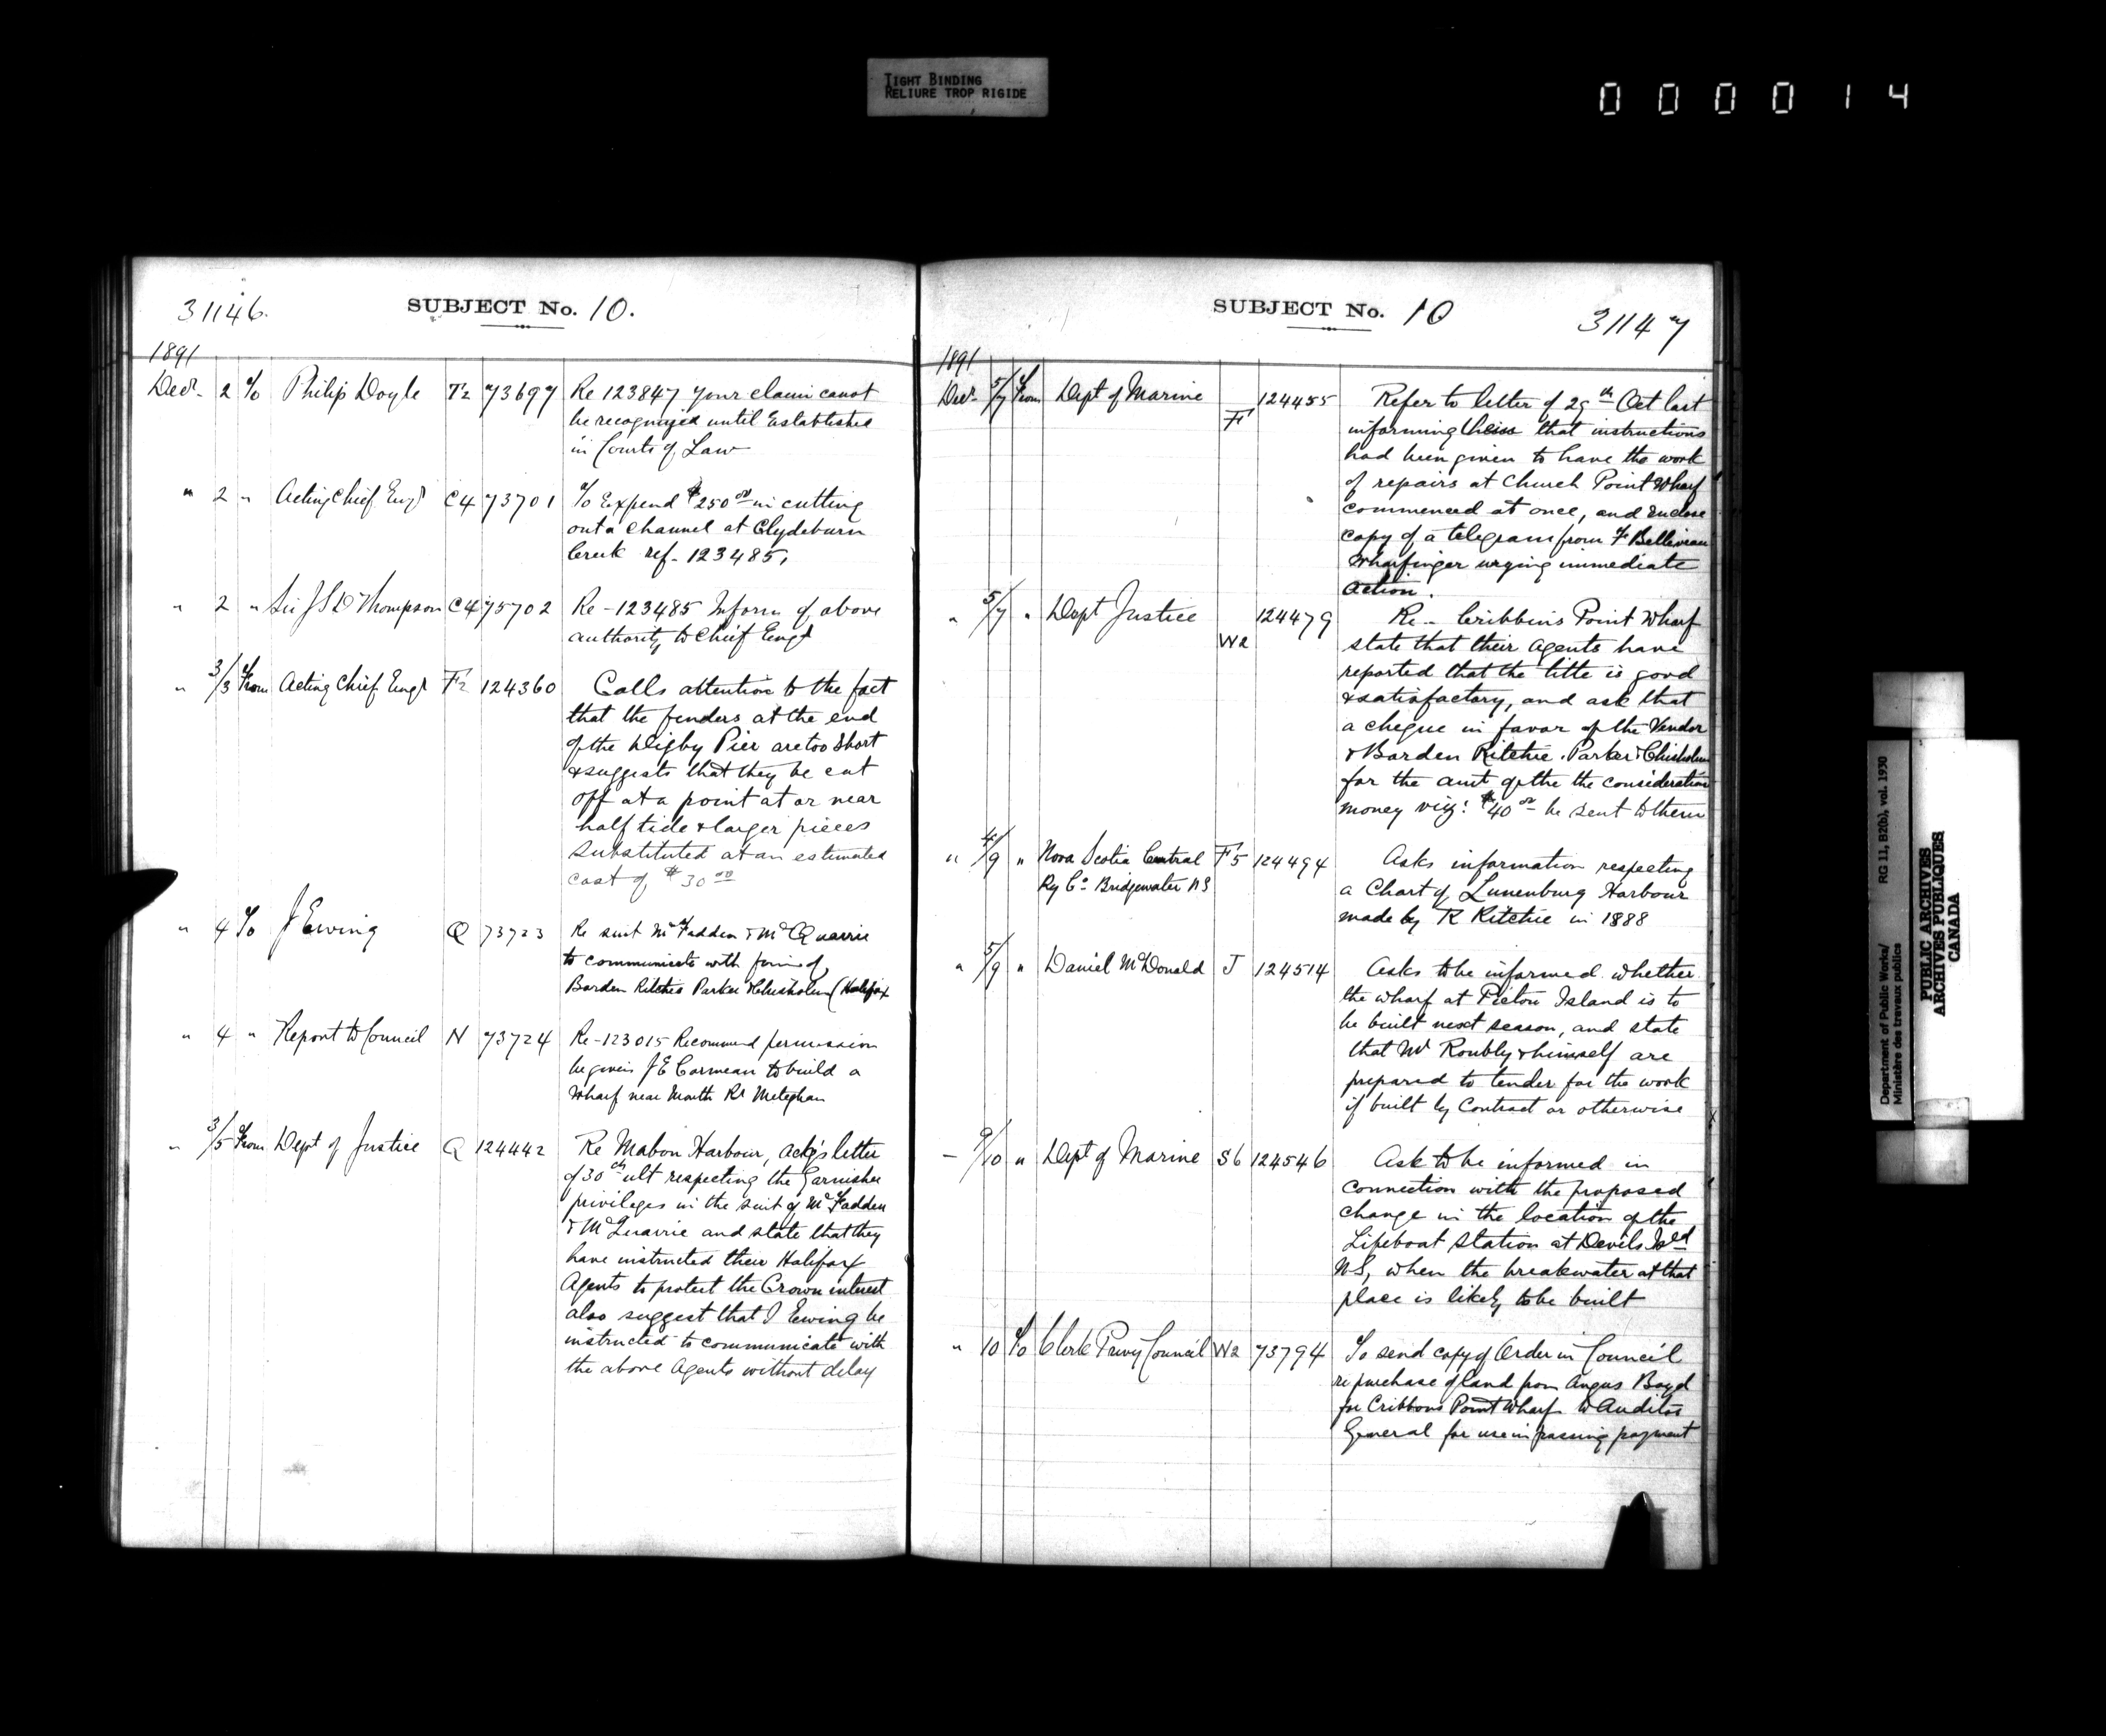 TIGHT BINDING
RELIURE TROP RIGIDE
000014
31146.
SUBJECT No. 10.
1891
Decr. 2 To Philip Doyle F2 73697 Re 123847 Your claim canot
be recognized until Established
in Courts of Law
" 2 " Acting Chief Engr C4 73701 To Expend $250 00 in cutting
out a channel at Clydeburn
Creek ref. 123485,
" 2 " Sir J S D Thompson C4 75702 Re - 123485 Inform of above
authority to Chief Engr
" 3/3 From Acting Chief Engr F2 124360 Calls attention to the fact
that the fenders at the end
of the Digby Pier are too Short
& suggests that they be cut
off at a point at or near
half tide & larger pieces
substituted at an estimated
cost of $30 00
" 4 To J Ewing Q 73723 Re suit McFadden & McQuarrie
to communicate with firm of
Borden Ritchie Parker & Chisholm (Halifax
" 4 " Report to Council N 73724 Re - 123015 Recommend permission
be given J E Cormeau to build a
Wharf near Mouth Rr Meteghan
" 3/5 From Dept of Justice Q 124442 Re Mabou Harbour, ackg's letter
of 30th ult respecting the Garnishee
privileges in the suit of McFadden
& McQuarrie and state that they
have instructed their Halifax
Agents to protect the Crown interest
also suggest that J Ewing be
instructed to communicate with
the above Agents without delay
SUBJECT No. 10
31147
1891
Decr. 5/7 From Dept of Marine F 124455 Refer to letter of 29th Oct last
informing them that instructions
had been given to have the work
of repairs at Church Point Wharf
commenced at once, and enclose
copy of a telegram from F Belliveau
Wharfinger urging immediate
action.
" 5/7 " Dept Justice W2 124479 Re - Cribbins Point Wharf
state that their agents have
reported that the title is good
& satisfactory, and ask that
a cheque in favor of the Vendor
& Borden Ritchie, Parker & Chisholm
for the amt of the the consideration
money viz: $40 00 be sent to them
" 4/9 " Nova Scotia Central F5 124494 Asks information respecting
Ry Co. Bridgewater NS a Chart of Lunenburg Harbour
made by R Ritchie in 1888
" 5/9 " Daniel McDonald J 124514 Asks to be informed whether
the wharf at Pictou Island is to
be built next season, and state
that Mr & himself are
prepared to tender for the work
if built by Contract or otherwise
" 9/10 " Dept of Marine S6 124546 Ask to be informed in
connection with the proposed
change in the location of the
Lifeboat Station at Devils Isld
NS, when the breakwater at that
place is likely to be built
" 10 To Clerk Privy Council W2 73794 To send copy of Order in Council
re purchase of land from Angus Boyd
for Cribbons Point Wharf to Auditor
General for use in passing payment
Department of Public Works/ RG 11, B2(b), vol. 1930
Ministère des travaux publics
PUBLIC ARCHIVES
ARCHIVES PUBLIQUES
CANADA